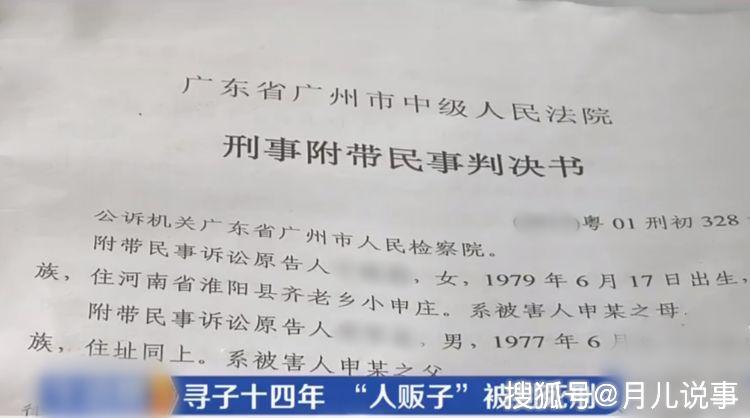 广东省广州市中级人民法院
刑事附带民事判决书
粤 01 刑初 328
公诉机关广东省广州市人民检察院。
附带民事诉讼原告人 ，女，1979 年 6 月 17 日出生，
族，住河南省淮阳县齐老乡小申庄。系被害人申某之母.
附带民事诉讼原告人 ，男，1977 年 6 月
族，住址同上。系被害人申某之父
寻子十四年 “人贩子”被
搜狐号@月儿说事